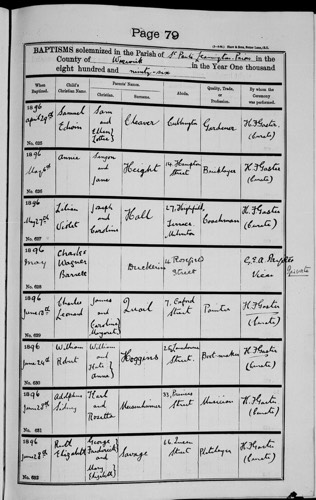 Page 79
BAPTISMS solemnized in the Parish of St Pauls Leamington Priors in the
County of Warwick in the Year One thousand
eight hundred and ninety-six
When Baptized.
Child's Christian Name.
Parents' Names.
Christian.
Surname.
Abode.
Quality, Trade, or Profession.
By whom the Ceremony was performed.
1896
April 29th
No. 625
Samuel
Edwin
Sam
and
Ellen
Cleaver
Cubbington
Gardener
H F Gaster
(Curate)
1896
May 6th
No. 626
Annie
and
Jane
Height
Street
Bricklayer
H F Gaster
(Curate)
1896
May 27th
No. 627
Lilian
Violet
Joseph
and
Caroline
Hall
Terrace
Milverton
Coachman
H F Gaster
(Curate)
1896
May
No. 628
Charles
Wagner
Barrett
Street
Vicar
Private
1896
June 13th
No. 629
Charles
Leonard
James
and
Caroline
Margaret
Quail
7, Oxford
Street
Painter
H F Gaster
(Curate)
1896
June 24th
No. 630
William
Robert
William
and
Kate
Annie
Hoggins
Street
Boot-maker
H F Gaster
(Curate)
1896
June 28th
No. 631
Adolphus
Sidney
Karl
and
Rosetta
33, Princes
Street
Musician
H F Gaster
(Curate)
1896
June 28th
No. 632
Ruth
Elizabeth
George
Frederick
and
Mary
Elizabeth
Savage
Street
Platelayer
H F Gaster
(Curate)